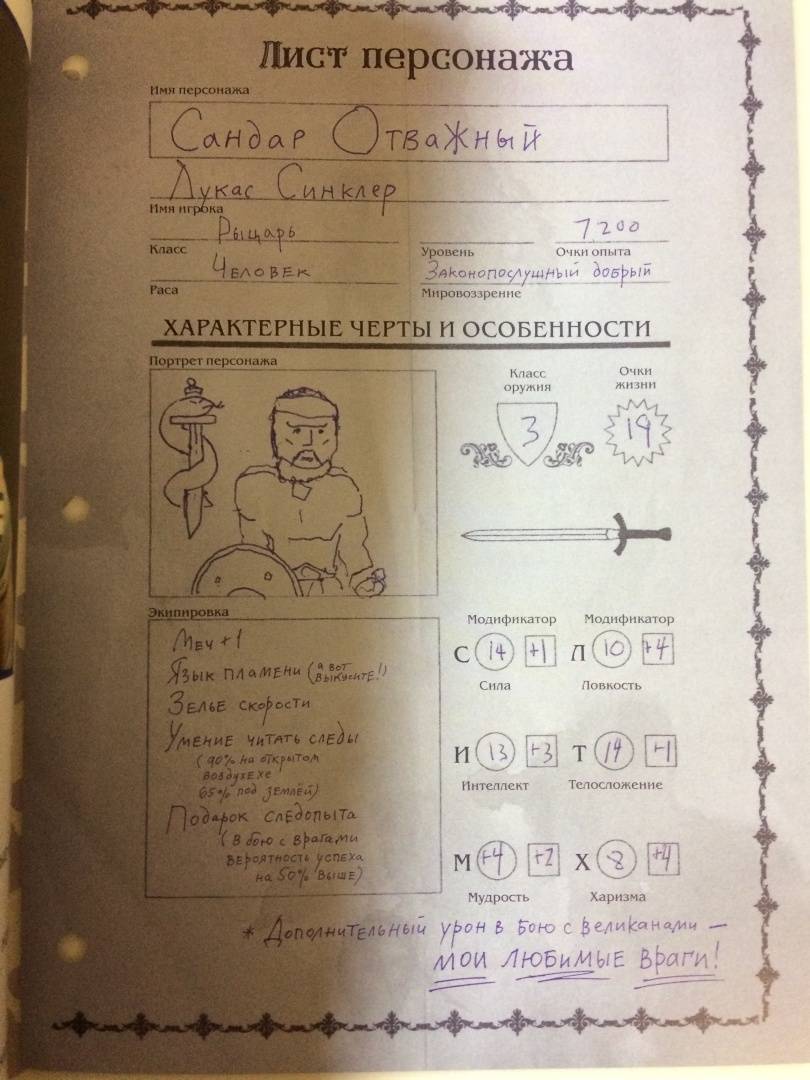 Лист персонажа
Имя персонажа
Сандар Отважный
Лукас Синклер
Имя игрока
Рыцарь 7.200
Класс Уровень Очки опыта
Человек Законопослушный добрый
Раса Мировоззрение
ХАРАКТЕРНЫЕ ЧЕРТЫ И ОСОБЕННОСТИ
Портрет персонажа
Класс оружия
3
Очки жизни
19
Экипировка
Меч +1
Язык пламени (а вот выкусите!)
Зелье скорости
Умение читать следы
(90% на открытом
воздухехе
65% под землёй)
Подарок следопыта
(в бою с врагами
вероятность успеха
на 50% выше)
Модификатор Модификатор
С 14 +1 Л 10 +4
Сила Ловкость
И 13 +3 Т 14 -1
Интеллект Телосложение
М +4 Х +4
Мудрость Харизма
* Дополнительный урон в бою с великанами —
мои любимые враги!